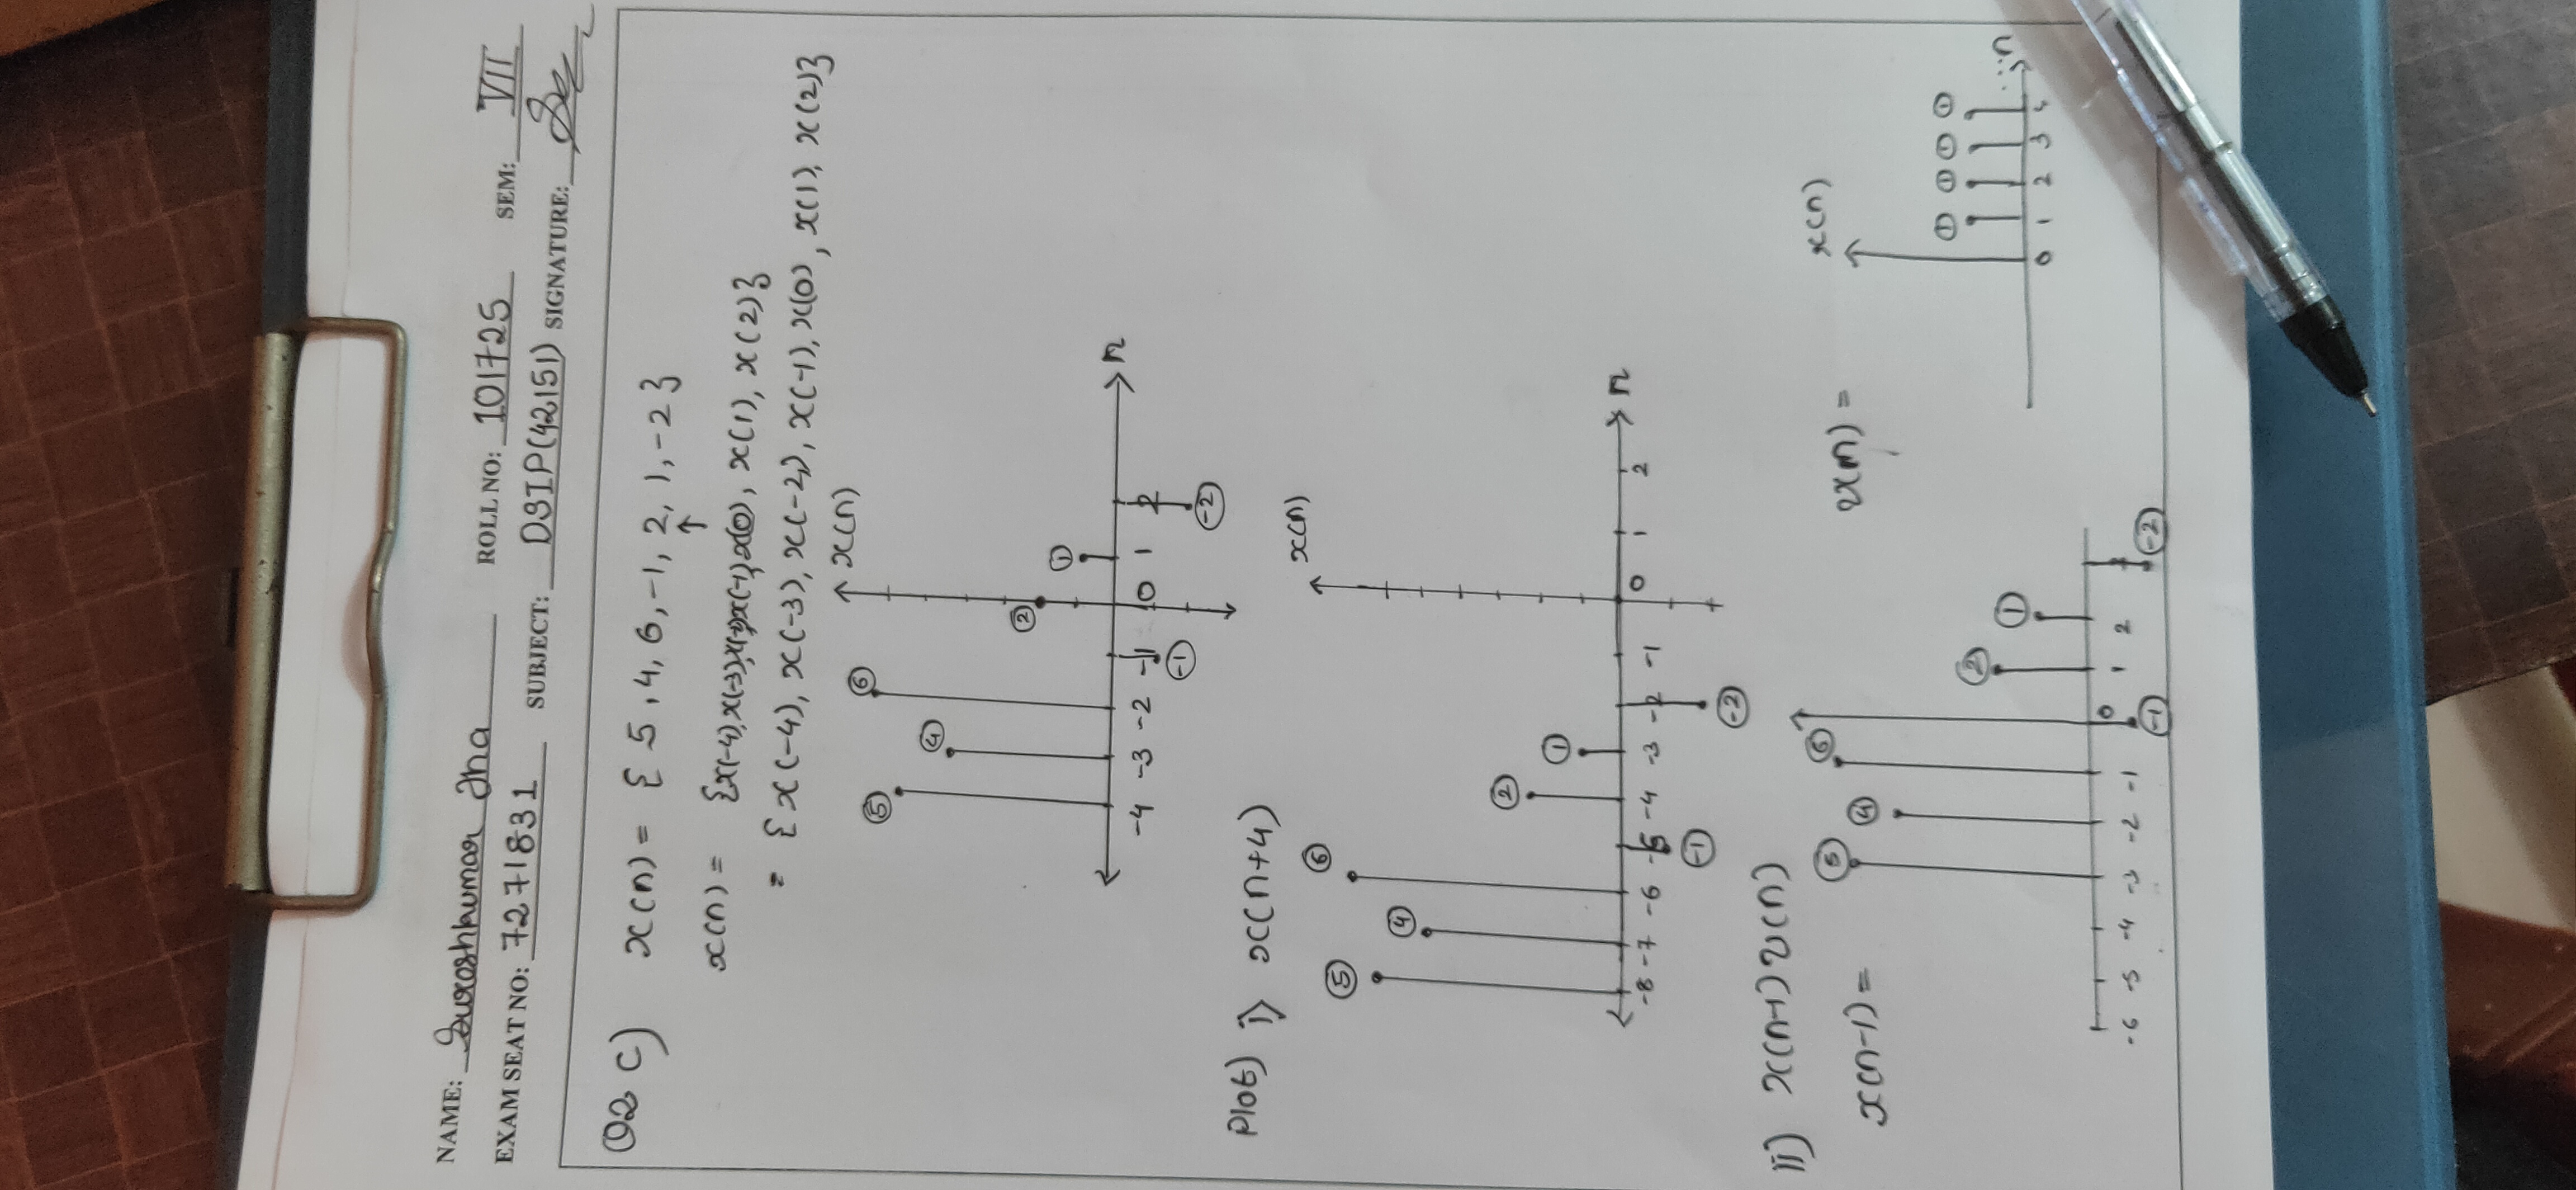 NAME: Sureshkumar Jha ROLL NO: 101725 SEM: VII
EXAM SEAT NO: 7271831 SUBJECT: DSIP(42151) SIGNATURE:
Q2 C) x(n) = { 5, 4, 6, -1, 2, 1, -2 }
↑
x(n) = {x(-4), x(-3), x(-2), x(-1), x(0), x(1), x(2)}
= { x(-4), x(-3), x(-2), x(-1), x(0), x(1), x(2)}
x(n)
5 4 6 2 1
-4 -3 -2 -1 0 1 2 n
-1 -2
Plot) i) x(n+4)
x(n)
5 4 6 2 1
-8 -7 -6 -5 -4 -3 -2 -1 0 1 2 n
-1 -2
ii) x(n-1) u(n)
x(n-1) =
5 4 6 2 1
-6 -5 -4 -3 -2 -1 0 1 2
-1 -2
u(n) =
x(n)
1 1 1 1
...n
0 1 2 3 4